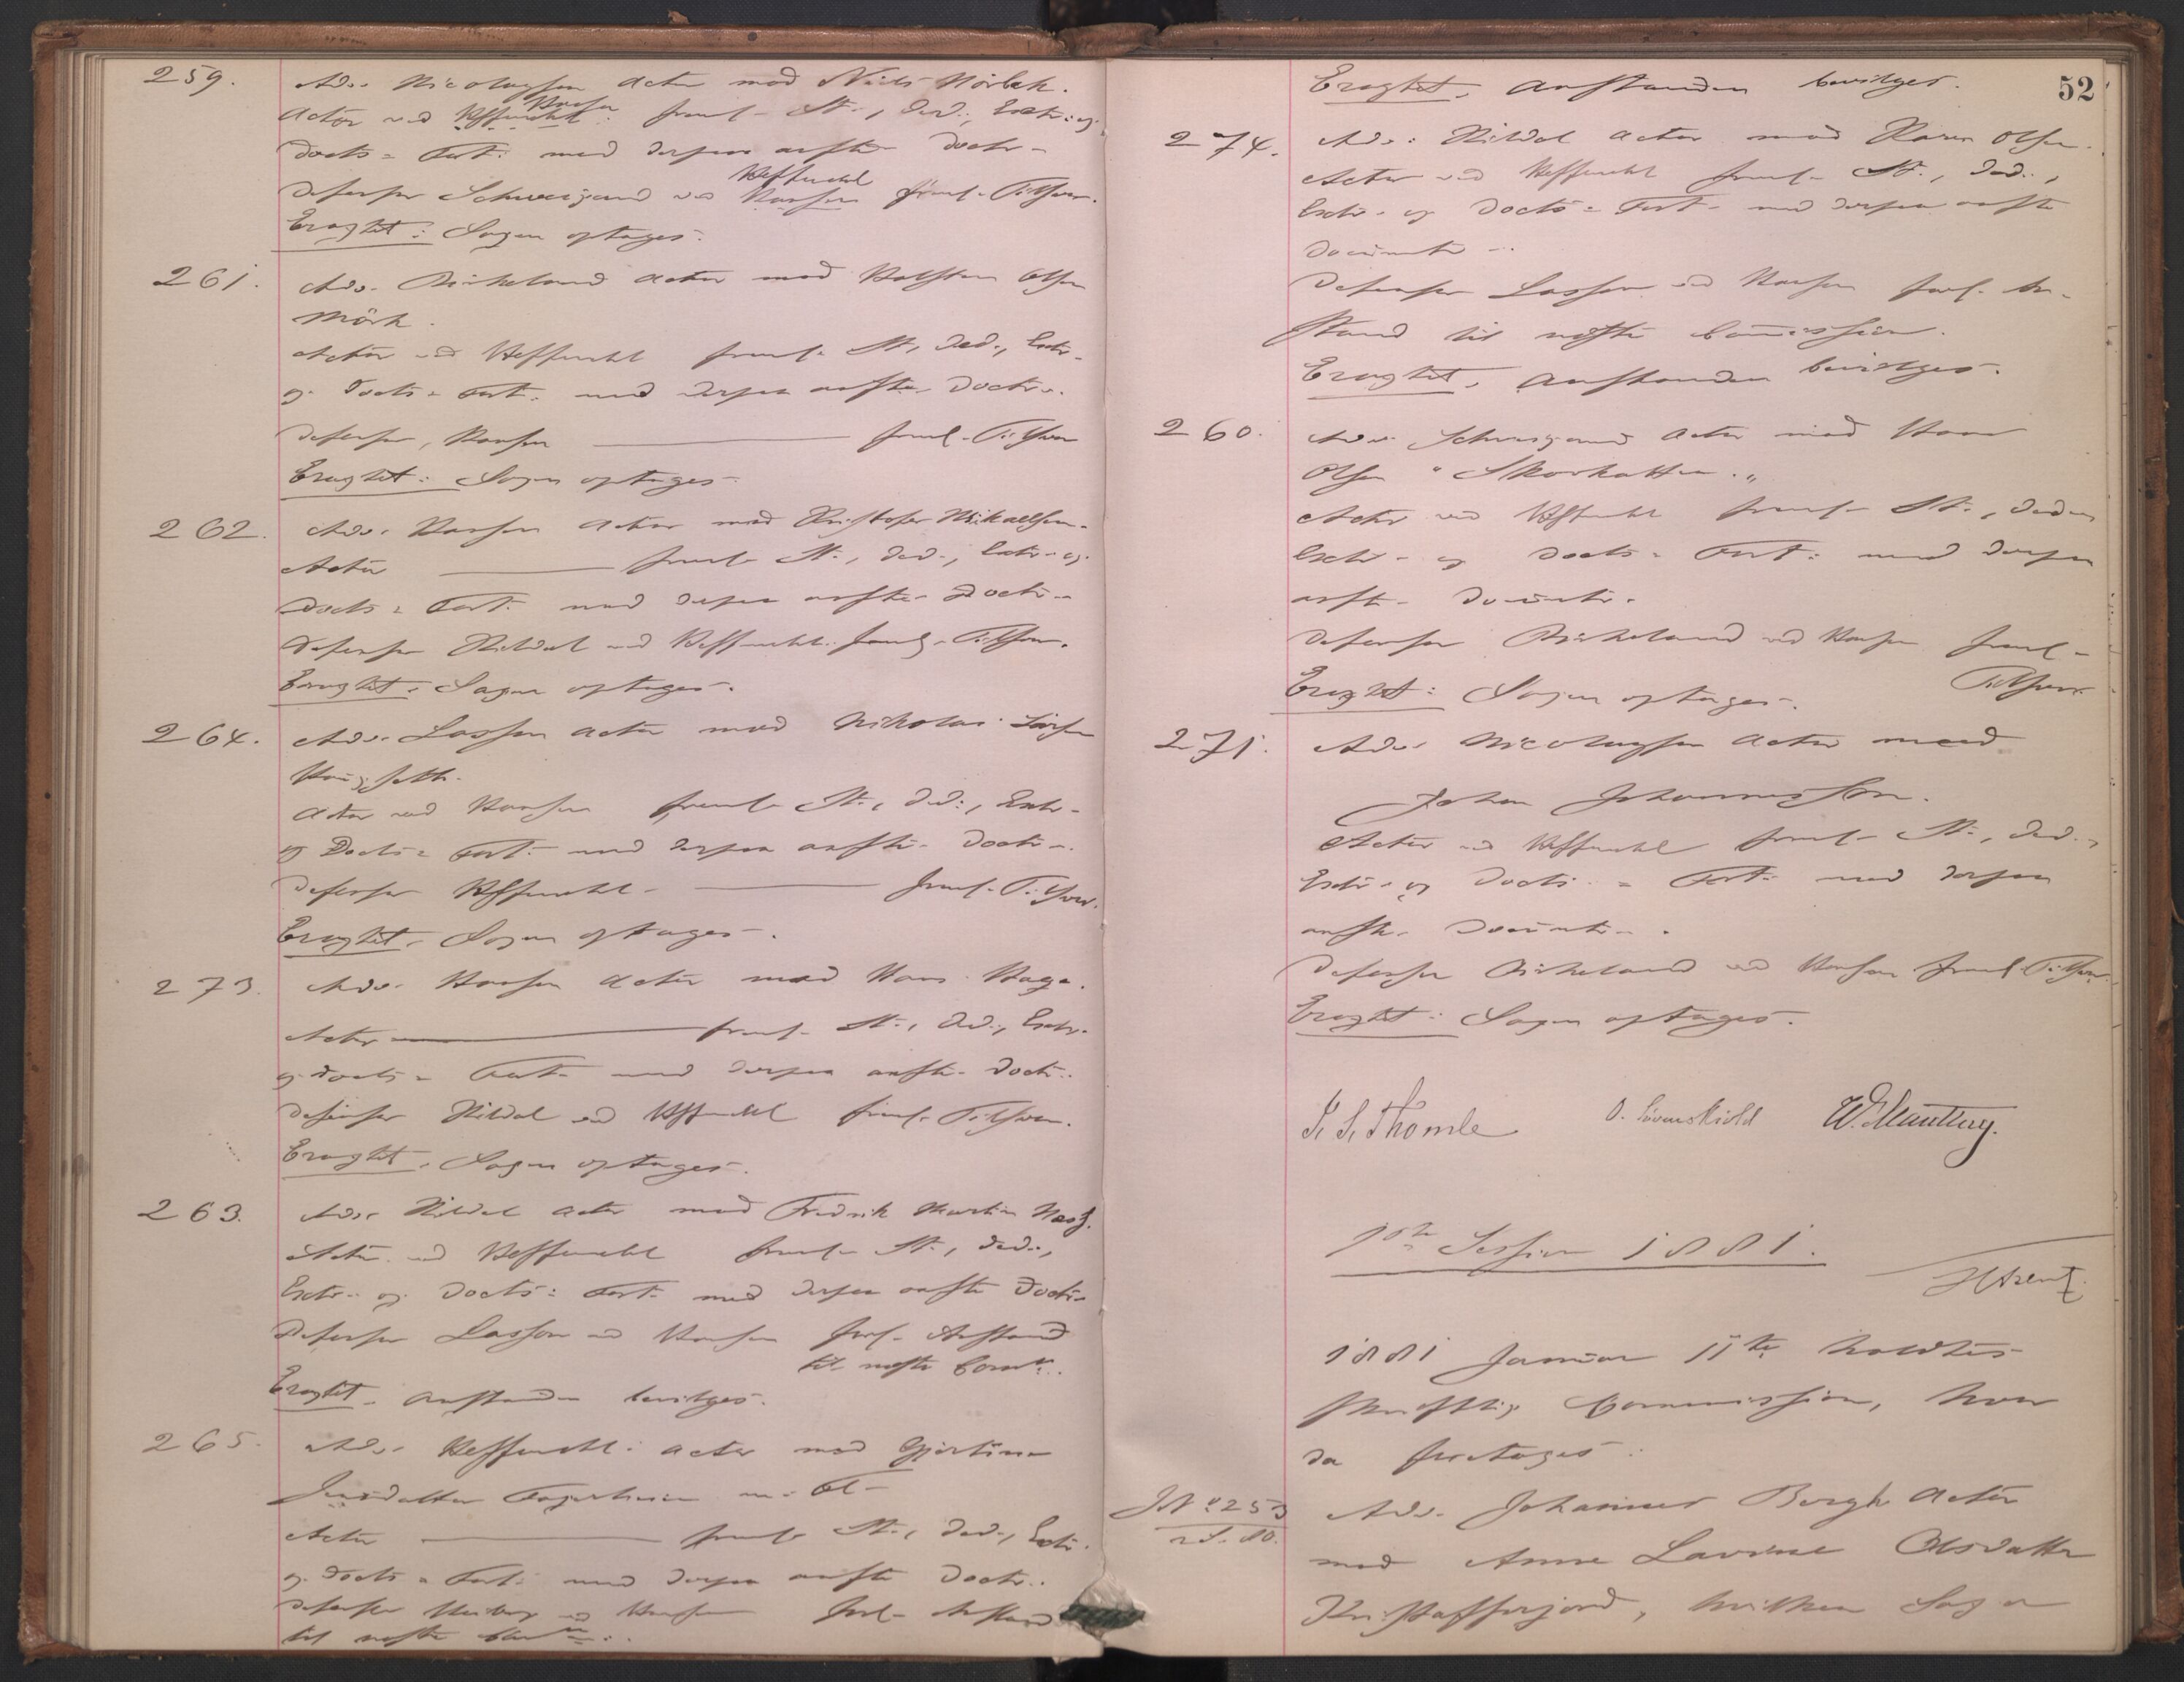 259. Adv. Nicolaysen Actor mod Niels Mörbek.
Hansen
Actor ved Heffermehl: freml. St., Ded., Extr. og
Docts = Fort. med derpaa anfte Doctr.
Heffermehl
Defensor Schweigaard ved Hansen freml. Tilsvar.
Eragtet: Sagen optages.
261. Adv. Birkeland Actor mod Halsten Olsen
Mörk.
Actor ved Heffermehl freml. St., Ded., Extr.
og Docts = Fort. med derpaa anfte Doctr.
Defensor, Hansen freml. Tilsvar
Eragtet: Sagen optages.
262. Adv. Hansen Actor mod Kristofer Mikaelsen.
Actor freml. St., Ded., Extr. og
Docts = Fort. med derpaa anfte Doctr.
Defensor Kildal ved Heffermehl freml. Tilsvar.
Eragtet: Sagen optages.
264. Adv. Lasson Actor mod Nikolai
Actor ved Hansen freml. St., Ded., Extr.
og Docts = Fort. med derpaa anfte Doctr.
Defensor Heffermehl freml. Tilsvar.
Eragtet. Sagen optages.
273. Adv. Hansen Actor mod Hans Hage.
Actor freml. St., Ded., Extr.
og Docts = Fort. med derpaa anfte Doctr.
Defensor Kildal ved Heffermehl freml. Tilsvar.
Eragtet. Sagen optages.
263. Adv. Kildal Actor mod Fredrik Martin
Actor ved Heffermehl freml. St., Ded.,
Extr. og Docts = Fort. med derpaa anfte Doctr.
Defensor Lasson ved Hansen forl. Anstand
til næste Comn.
Eragtet. Anstanden bevilges.
265. Adv. Heffermehl Actor mod Gjertine
Actor freml. St., Ded., Extr.
og Docts = Fort. med derpaa anfte Doctr.
Defensor ved Hansen forl. Anstand
til næste
52
Eragtet. Anstanden bevilges.
274. Adv. Kildal Actor mod Karen Olsen.
Actor ved Heffermehl freml. St., Ded.,
Extr. og Docts = Fort. med derpaa anfte
Documtr.
Defensor Lasson ved Hansen forl. An-
stand til næste Commission.
Eragtet. Anstanden bevilges.
260. Adv. Schweigaard Actor mod
Olsen "Skorhatten."
Actor ved Heffermehl freml. St., Ded.
Extr. og Docts = Fort. med derpaa
anfte Documtr.
Defensor Birkeland ved Hansen freml.
Tilsvar.
Eragtet: Sagen optages.
271. Adv. Nicolaysen Actor mod
Johan Johannesson.
Actor ved Heffermehl freml. St., Ded.,
Extr. og Docts = Fort. med derpaa
anfte Documtr.
Defensor Birkeland ved Hansen freml. Tilsvar.
Eragtet: Sagen optages.
S. S. Thomle O. Løvenskiold W. Manthey.
1ste Session 1881.
1881 Januar 11te holdtes
skriftlig Commission, hvor
da foretoges:
№ 253 Adv. Johannes Bergh Actor
mod Anne Lavine Olsdatter
hvilken Sag er